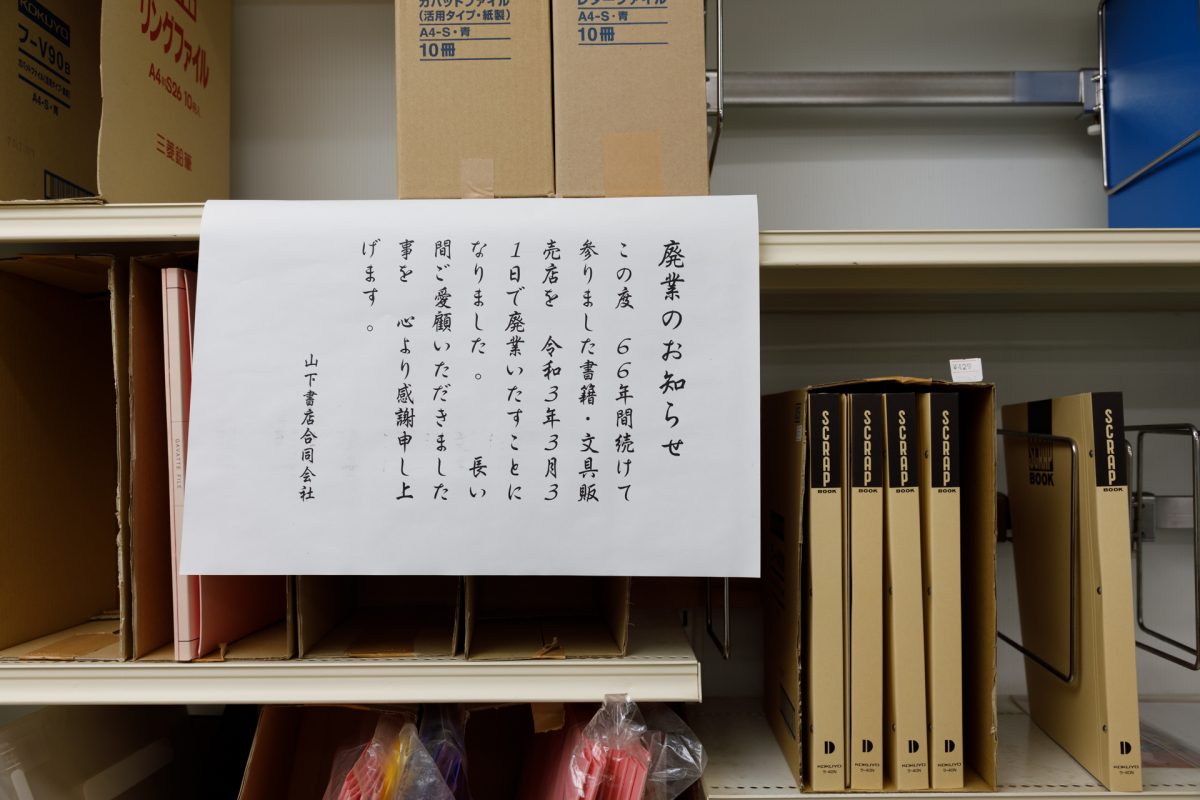 KOKUYO
フ-V90B
A4-S・青
リングファイル
A4 S26 10冊入
三菱鉛筆
ガバットファイル
(活用タイプ・紙製)
A4-S・青
10冊
レターファイル
A4-S・青
10冊
廃業のお知らせ
この度　66年間続けて
参りました書籍・文具販
売店を　令和3年3月3
1日で廃業いたすことに
なりました。　　長い
間ご愛顧いただきました
事を　心より感謝申し上
げます。
山下書店合同会社
GAVATTE FILE
¥429
SCRAP
BOOK
SCRAP
BOOK
SCRAP
BOOK
SCRAP
BOOK
SCRAP
BOOK
SCRAP
BOOK
D
KOKUYO
ラ-40N
D
KOKUYO
ラ-40N
D
KOKUYO
ラ-40N
D
KOKUYO
ラ-40N
D
KOKUYO
ラ-40N